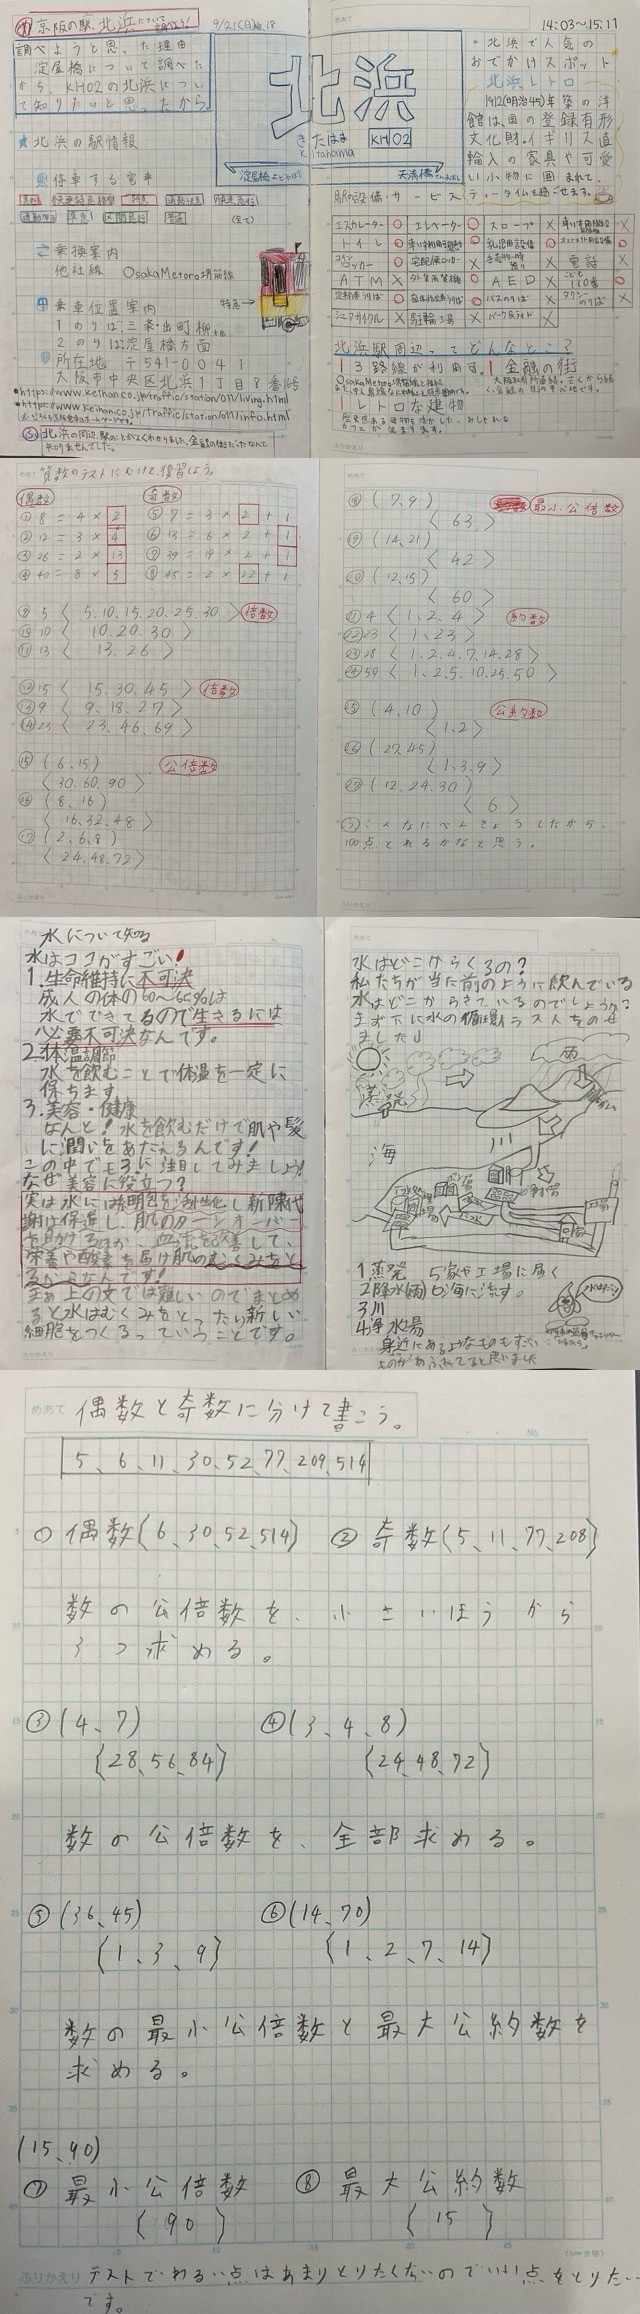 京阪の駅、北浜について調べよう!
9/21(日)No.18
調べようと思った理由
淀屋橋について調べた
から、KH02の北浜につい
て知りたいと思ったから。
北浜の駅情報
停車する電車
(全て)
乗換案内
他社線 OsakaMetoro堺筋線
特急
乗車位置案内
1のりば:三条・出町柳
2のりば:淀屋橋方面
所在地 〒541-0041
大阪市中央区北浜1丁目8番16号
https://www.keihan.co.jp/traffic/station/011/living.html
https://www.keihan.co.jp/traffic/station/011/info.html
北浜の周辺、駅のことがよくわかりました。
知りませんでした。
北浜
きたはま
Kitahama
KH02
淀屋橋
天満橋
14:03~15:11
・北浜で人気の
おでかけスポット
北浜レトロ
1912(明治45)年築の洋
館は、国の登録有形
文化財。イギリス直
輸入の家具や可愛
い小物に囲まれて、
ティータイムを過ごせます。
駅の設備・サービス
エスカレーター ○ エレベーター ○ スロープ ×
トイレ ○
ATM × AED ○
シェアサイクル × 駐輪場 × パーク&ライド ×
北浜駅周辺ってどんなとこ?
3路線が利用可。
金融の街
レトロな建物
算数のテストにむけて、復習しよう。
偶数
① 8=4×2
② 12=3×4
③ 26=2×13
④ 40=8×5
奇数
⑤ 7=3×2+1
⑥ 13=6×2+1
⑦ 39=19×2+1
⑧ 45=2×22+1
⑨ 5〈5.10.15.20.25.30〉倍数
⑩ 10〈10.20.30〉
⑪ 13〈13.26〉
⑫ 15〈15.30.45〉倍数
⑬ 9〈9.18.27〉
⑭ 23〈23.46.69〉
⑮ (6、15) 公倍数
〈30.60.90〉
⑯ (8、16)
〈16.32.48〉
⑰ (2、6、8)
〈24.48.72〉
⑱ (7、9) 最小公倍数
〈63〉
⑲ (14、21)
〈42〉
⑳ (12、15)
〈60〉
㉑ 4〈1、2、4〉約数
㉒ 23〈1、23〉
㉓ 28〈1、2、4、7、14、28〉
㉔ 50〈1、2、5、10、25、50〉
㉕ (4、10) 公約数
〈1、2〉
㉖ (27、45)
〈1、3、9〉
㉗ (12、24、30)
〈6〉
こんなにべんきょうしたから、
100点とれるかなと思う。
水について知る
水はココがすごい!
1.生命維持に不可決
成人の体の60~65%は
水でできてるので生きるには
必要不可決なんです。
2.体温調節
水を飲むことで体温を一定に
保ちます
3.美容・健康
なんと!水を飲むだけで肌や髪
に潤いをあたえるんです!
この中でも3に注目してみましょう!
なぜ美容に役立つ?
実は水には細胞を活性化し新陳代
謝は保進し、肌のターンオーバー
を助けるほか、血流を改善して、
栄養や酸素を届け肌のむくみをと
るからなんです!
まぁ上の文では難しいのでまとめ
ると水はむくみをとったり新しい
細胞をつくるっていうことです。
水はどこからくるの?
私たちが当た前のように飲んでいる
水はどこからきているのでしょうか?
まず下に水の循環イラストをのせ
ました↓
雨
蒸発
川
海
1蒸発 5家や工場に届く
2降水(雨) 6海に流す。
3川
4浄水場
身近にあるようなものもすごい
ものがあふれてると思いました
めあて 偶数と奇数に分けて書こう。
5、6、11、30、52、77、209、514
① 偶数(6、30、52、514) ② 奇数(5、11、77、208)
数の公倍数を、小さいほうから
3つ求める。
③(4、7) ④(3、4、8)
(28、56、84) (24、48、72)
数の公倍数を、全部求める。
⑤(36、45) ⑥(14、70)
(1、3、9) (1、2、7、14)
数の最小公倍数と最大公約数を
求める。
(15、90)
⑦ 最小公倍数 ⑧ 最大公約数
(90) (15)
ふりかえり テストでわるい点はあまりとりたくないのでいい点をとりたい
です。